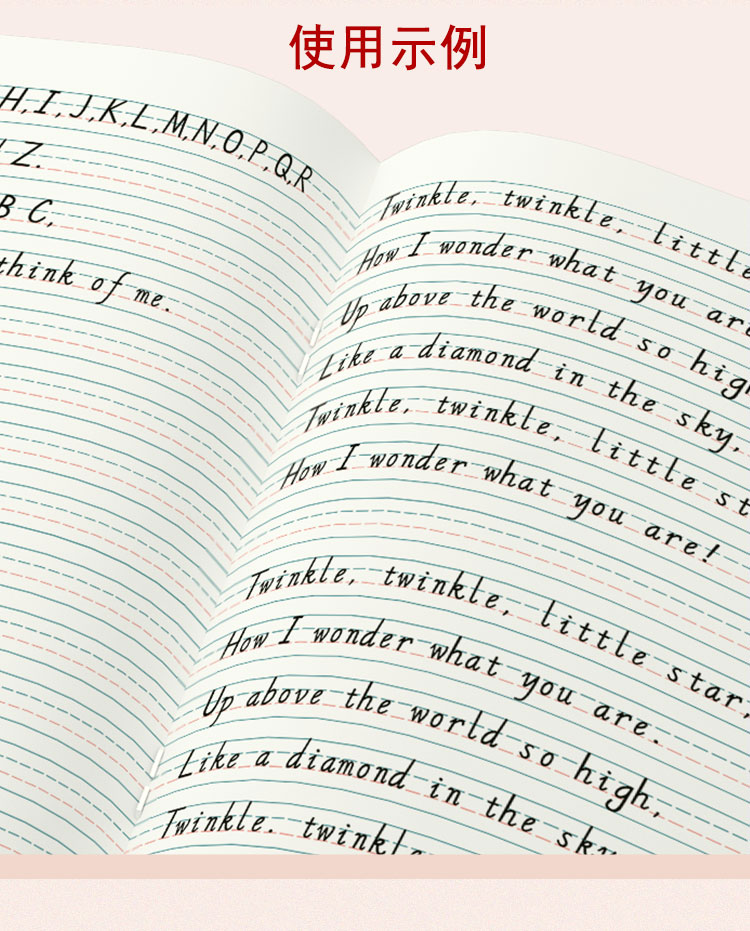 使用示例
H,I,J,K,L,M,N,O,P,Q,R
Z.
B C,
think of me.
Twinkle, twinkle, little
How I wonder what you are
Up above the world so high
Like a diamond in the sky,
Twinkle, twinkle, little st
How I wonder what you are!
Twinkle, twinkle, little star.
How I wonder what you are.
Up above the world so high,
Like a diamond in the sky
Twinkle. twinkle